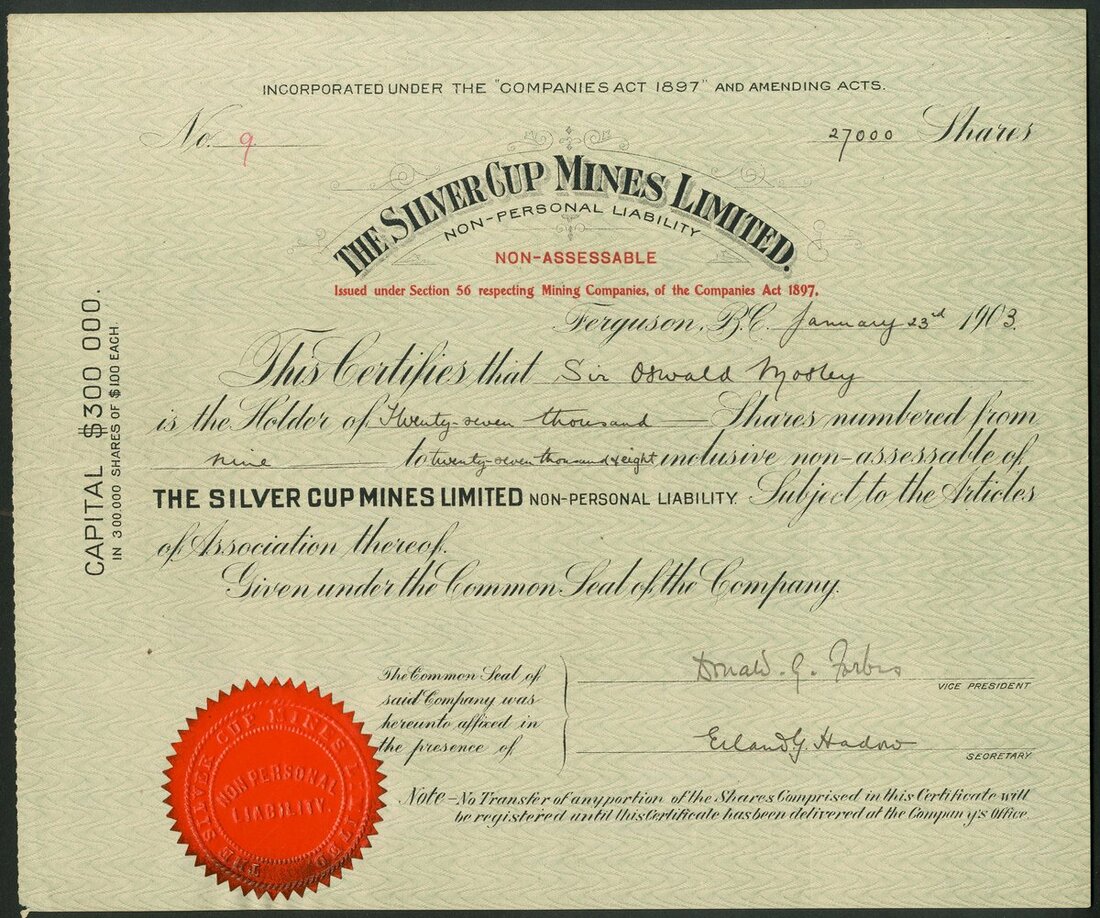 INCORPORATED UNDER THE "COMPANIES ACT 1897" AND AMENDING ACTS.
No. 9 27000 Shares
THE SILVER CUP MINES LIMITED.
NON-PERSONAL LIABILITY
NON-ASSESSABLE
Issued under Section 56 respecting Mining Companies, of the Companies Act 1897.
Ferguson, B.C. January 23rd 1903.
This Certifies that Sir Oswald Mosley
is the Holder of Twenty-seven thousand Shares numbered from
nine to twenty-seven thousand & eight inclusive non-assessable of
THE SILVER CUP MINES LIMITED NON-PERSONAL LIABILITY. Subject to the Articles
of Association thereof.
Given under the Common Seal of the Company.
CAPITAL $300 000.
IN 300.000 SHARES OF $1.00 EACH.
The Common Seal of
said Company was
hereunto affixed in
the presence of
Donald. G. Forbes
VICE PRESIDENT
Hadow
SECRETARY
Note - No Transfer of any portion of the Shares Comprised in this Certificate will
be registered until this Certificate has been delivered at the Company's Office.
THE SILVER CUP MINES LIMITED
NON PERSONAL
LIABILITY.